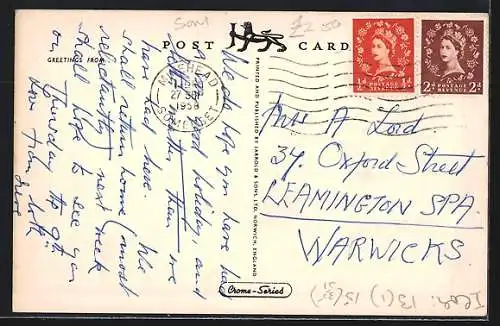 Som
£2.50
POST CARD
GREETINGS FROM
We do hope you have had
a good holiday, and
better than we
have had here. We
shall return home (most
reluctantly) next week
shall hope to see you
on Thursday the 9th.
Love from both
MINEHEAD
1958
SOMERSET
½d POSTAGE REVENUE ½d
2d POSTAGE REVENUE 2d
PRINTED AND PUBLISHED BY JARROLD & SONS LTD, NORWICH, ENGLAND
Crome-Series
A Lord
34, Oxford Street
LEAMINGTON SPA.
WARWICKS.
13(1) 15(